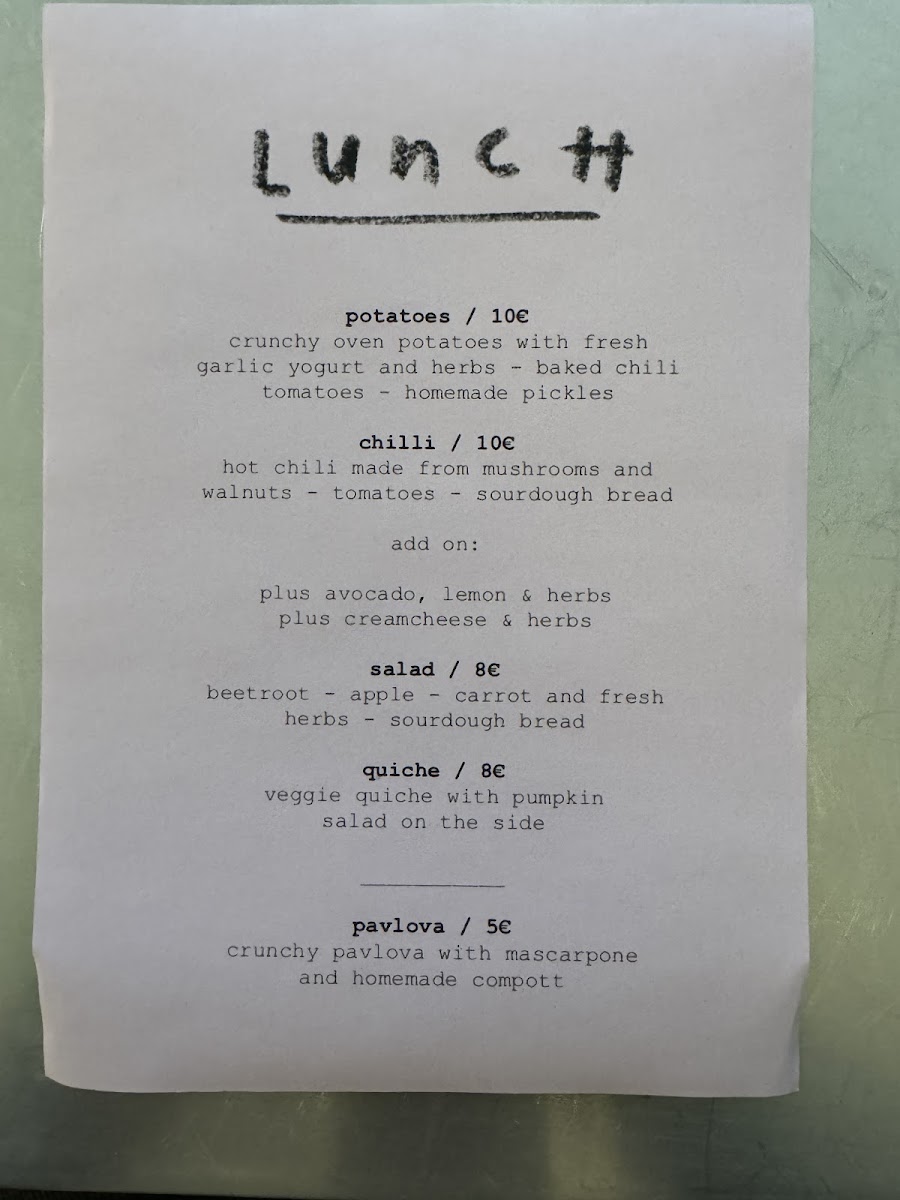 LUNCH
potatoes / 10€
crunchy oven potatoes with fresh
garlic yogurt and herbs - baked chili
tomatoes - homemade pickles
chilli / 10€
hot chili made from mushrooms and
walnuts - tomatoes - sourdough bread
add on:
plus avocado, lemon & herbs
plus creamcheese & herbs
salad / 8€
beetroot - apple - carrot and fresh
herbs - sourdough bread
quiche / 8€
veggie quiche with pumpkin
salad on the side
pavlova / 5€
crunchy pavlova with mascarpone
and homemade compott